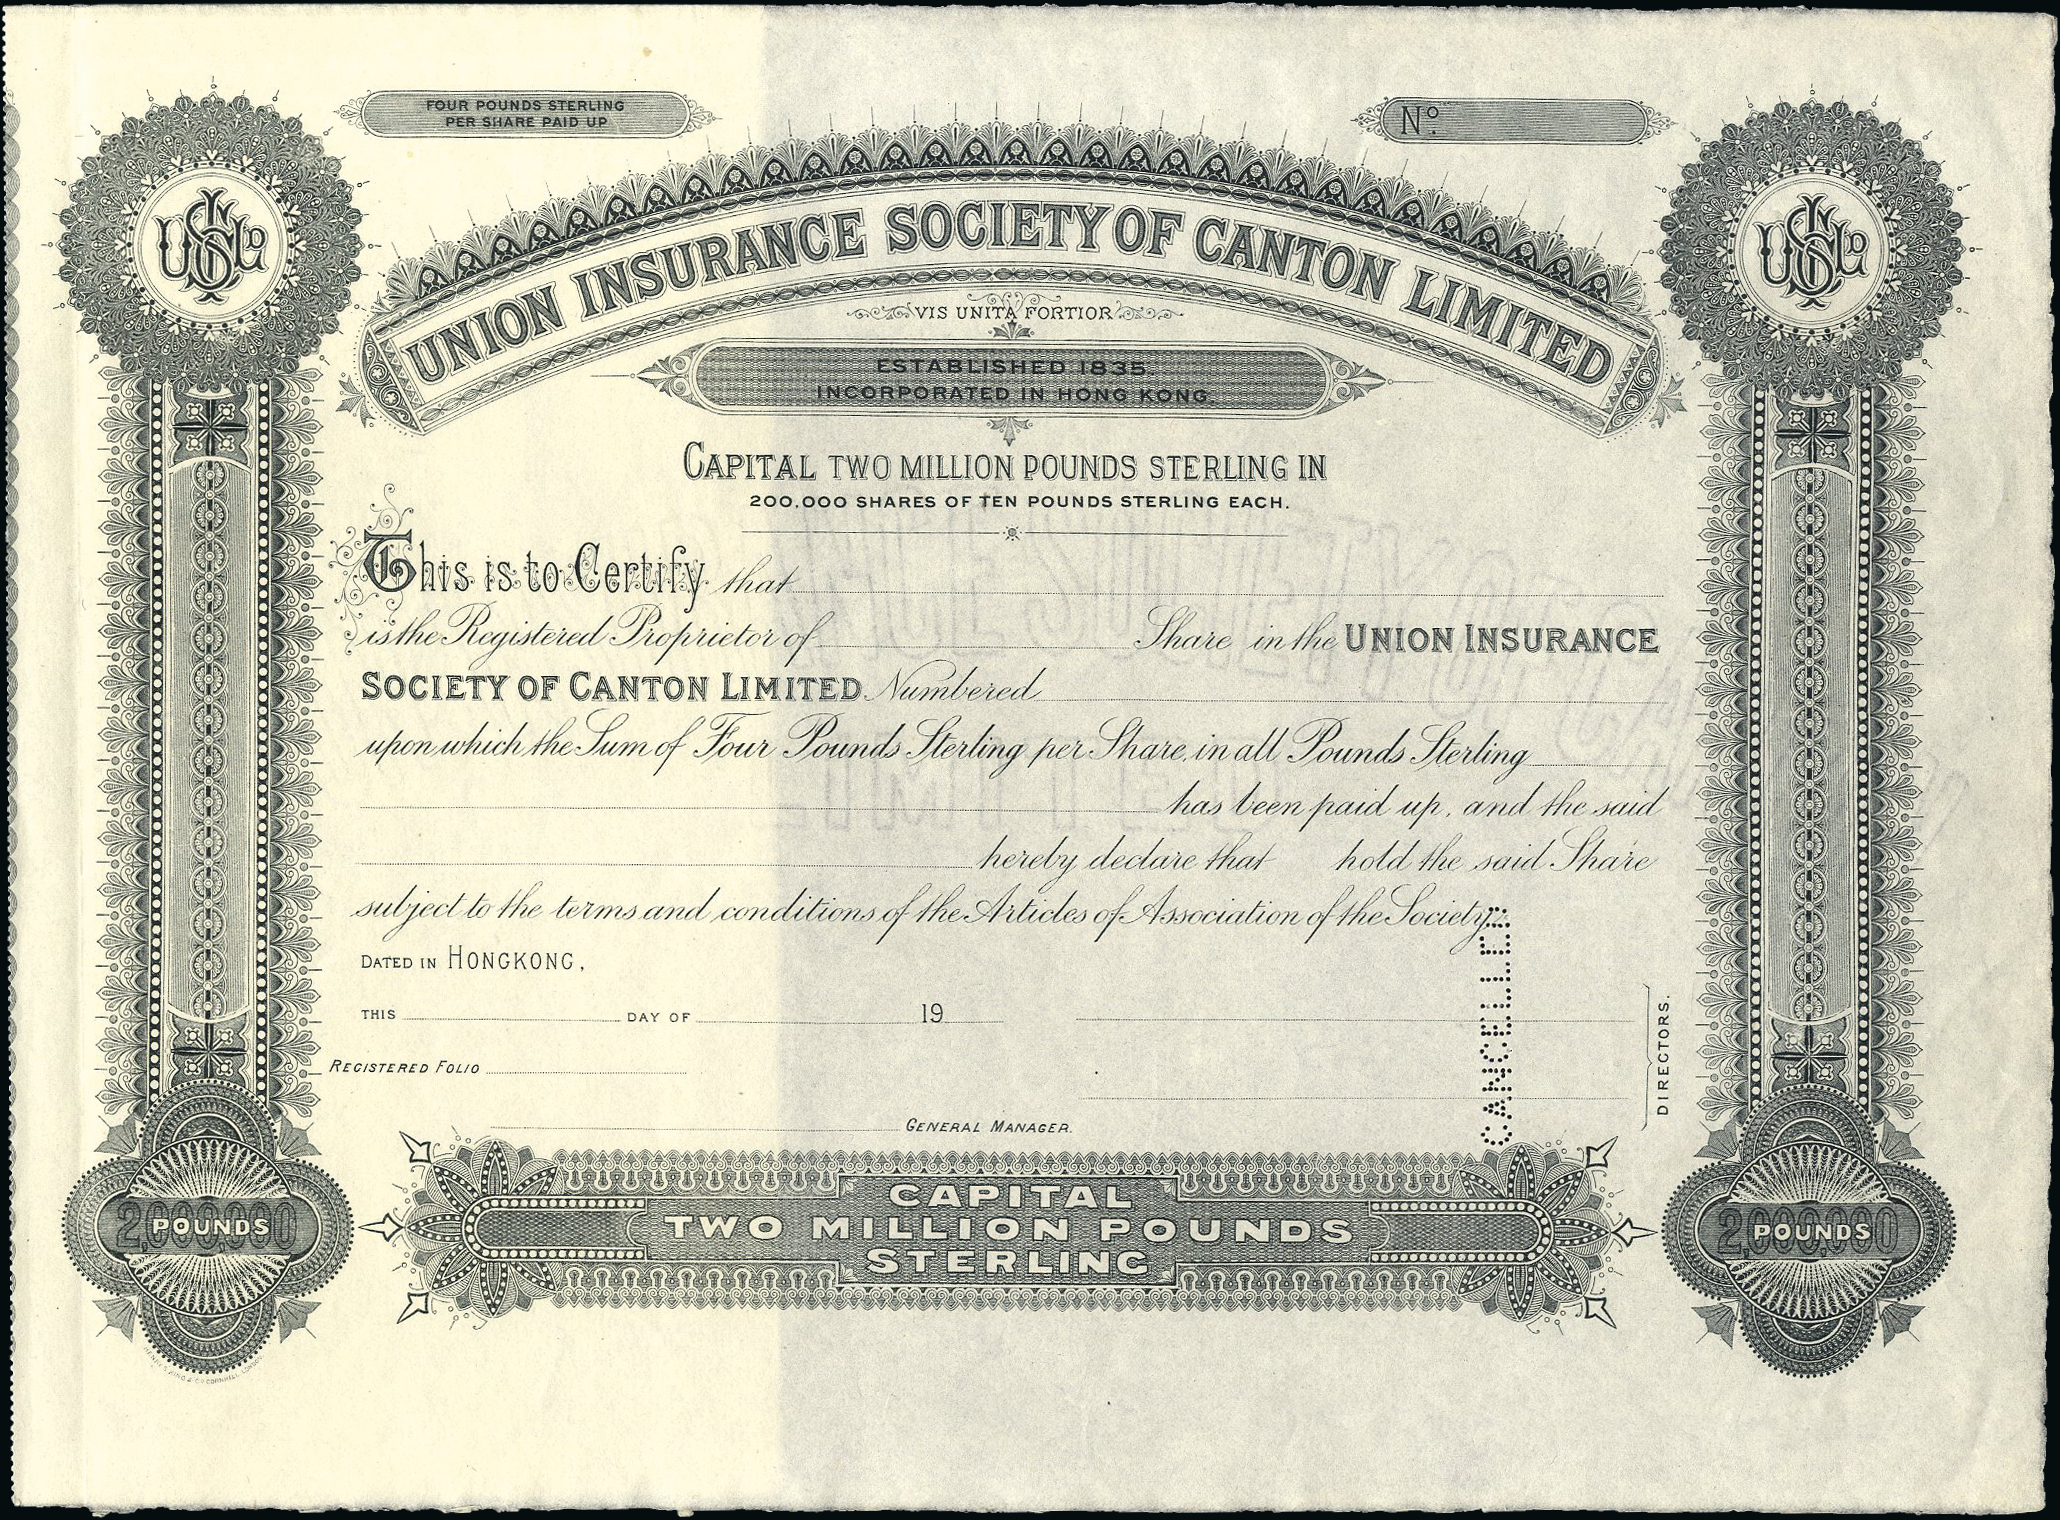 FOUR POUNDS STERLING
PER SHARE PAID UP
No.
UNION INSURANCE SOCIETY OF CANTON LIMITED
VIS UNITA FORTIOR
ESTABLISHED 1835.
INCORPORATED IN HONG KONG.
CAPITAL TWO MILLION POUNDS STERLING IN
200,000 SHARES OF TEN POUNDS STERLING EACH.
This is to Certify that
is the Registered Proprietor of Share in the UNION INSURANCE
SOCIETY OF CANTON LIMITED Numbered
upon which the Sum of Four Pounds Sterling per Share, in all Pounds Sterling
has been paid up, and the said
hereby declare that hold the said Share
subject to the terms and conditions of the Articles of Association of the Society.
DATED IN HONGKONG,
THIS DAY OF 19
REGISTERED FOLIO
GENERAL MANAGER.
DIRECTORS.
CANCELLED
CAPITAL
TWO MILLION POUNDS
STERLING
2,000,000
POUNDS
2,000,000
POUNDS
HENRY S. KING & CO CORNHILL LONDON